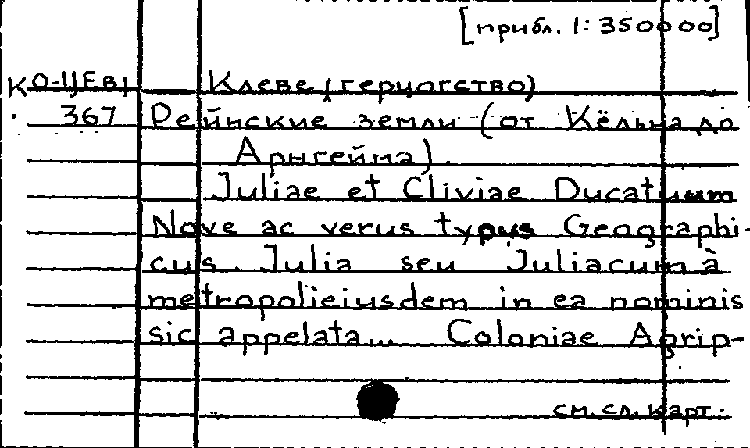 [прибл. 1:350000]
КО-Ц Ев/ Клеве (герцогство)
367 Рейнские земли (от Кёльна до
Арнгейма).
Juliae et Cliviae Ducatuum
Nove ac verus typus Geographi-
cus. Julia seu Juliacum à
metropolieiusdem in ea nominis
sic appelata... Coloniae Agrip-
см. сл. карт.